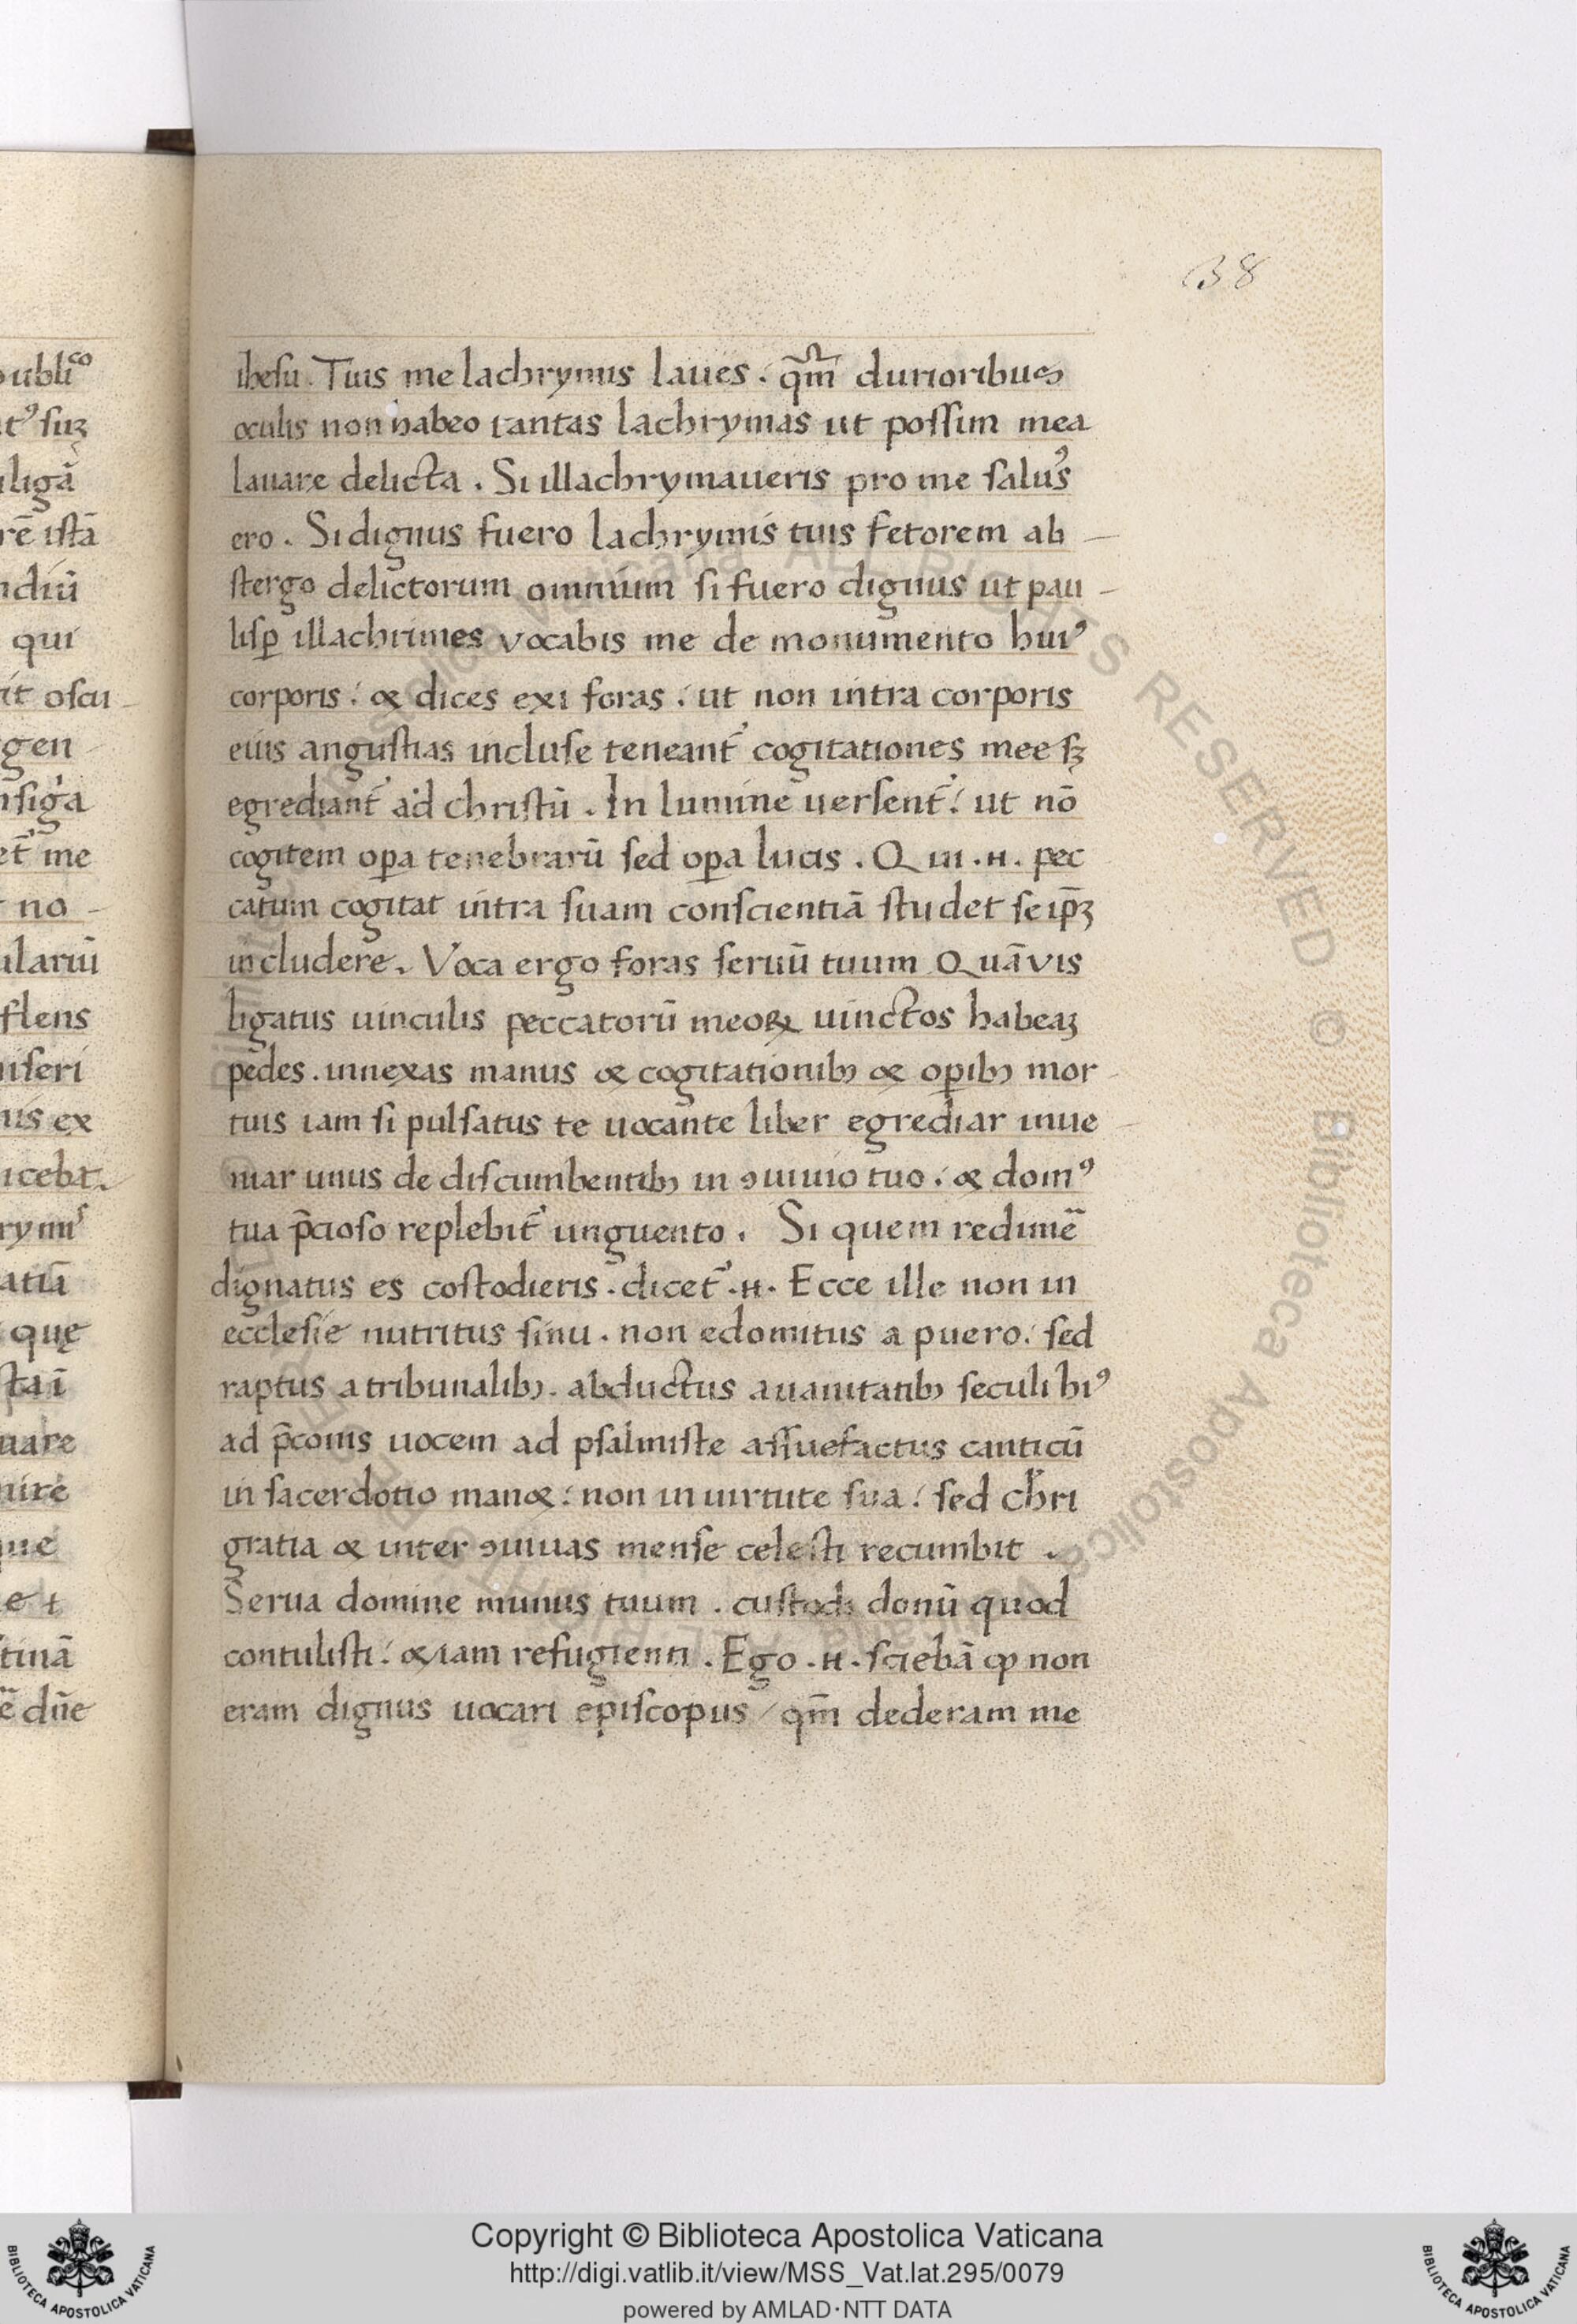 38
ihesu. Tuis me lachrymis laues. qm̄ durioribus
oculis non habeo tantas lachrymas ut possim mea
lauare delicta. Si illachrymaueris pro me salu᷒s
ero. Si dignus fuero lachrymis tuis fetorem ab-
stergo delictorum omnium si fuero dignus ut pau-
lisꝑ illachrimes vocabis me de monumento huiꝰ
corporis: & dices exi foras: ut non intra corporis
eius angustias incluse teneant᷑ cogitationes mee sꝫ
egrediant᷑ ad christū. In lumine uersent᷑: ut nō
cogitem oꝑa tenebrarū sed oꝑa lucis. Qui .n. pec
catum cogitat intra suam conscientiā studet seip̄ꝫ
includere. Voca ergo foras seruū tuum Quāvis
ligatus uinculis peccatorū meoꝝ uinctos habeaꝫ
pedes. innexas manus & cogitationibꝫ & oꝑibꝫ mor-
tuis iam si pulsatus te uocante liber egrediar inue-
niar unus de discumbentibꝫ in ꝯuiuio tuo: & domꝰ
tua p̄cioso replebit᷑ unguento. Si quem redimē
dignatus es costodieris. dicet᷑ .n. Ecce ille non in
ecclesie nutritus sinu. non edomitus a puero: sed
raptus a tribunalibꝫ. abductus a uanitatibꝫ seculi hiꝰ
ad p̄conis uocem ad psalmiste assuefactus canticū
in sacerdotio man&: non in uirtute sua: sed chr̄i
gratia & inter ꝯuiuas mense celesti recumbit.
Serua domine munus tuum. custodi donū quod
contulisti: &iam refugienti. Ego .n. sciebā ꝙ non
eram dignus uocari episcopus / qm̄ dederam me
ubliͨͦ
qui
it oscu-
gen-
me
no-
flens
iseri
ex
que
uare
dn̄e
Copyright © Biblioteca Apostolica Vaticana
http://digi.vatlib.it/view/MSS_Vat.lat.295/0079
powered by AMLAD·NTT DATA
BIBLIOTECA APOSTOLICA VATICANA
BIBLIOTECA APOSTOLICA VATICANA